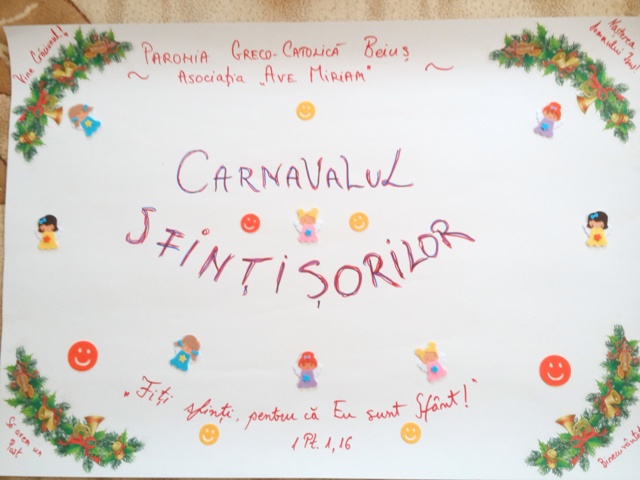 Vine Crăciunul!
Nașterea
Domnului Isus!
PAROHIA GRECO-CATOLICĂ BEIUȘ
~ ASOCIAȚIA „AVE MIRIAM" ~
CARNAVALUL
SFINȚIȘORILOR
„Fiți sfinți, pentru că Eu sunt Sfânt!"
1 Pt. 1, 16
Să avem un
Post
Binecuvântat